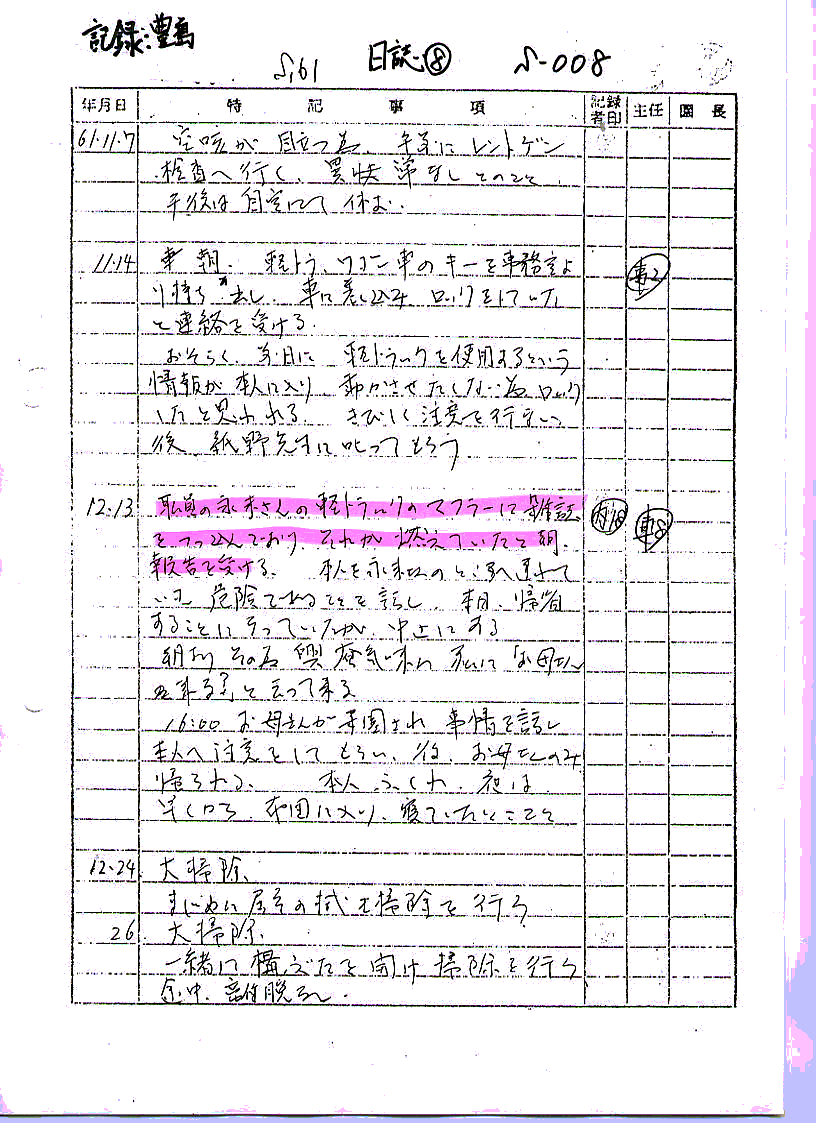 記録:豊島
S.61 日誌⑧ S-008
年月日 特記事項 記録者印 主任 園長
61.11.7 空咳が目立つ為、午前にレントゲン
検査へ行く、異状 なしとのこと
午後は自室にて休む.
11.14 朝. 軽トラ、ワゴン車のキーを事務室よ
り持ち出し、車に差し込み ロックをしていた
と連絡を受ける.
おそらく、前日に 軽トラックを使用するという
情報が本人に入り 動かさせたくない為、ロック
したと思われる. きびしく注意を行ない
後、紙野先生に叱ってもらう
12.13 職員の永末さんの軽トラックのマフラーに雑誌
をつっ込んでおり、それが燃えていたと朝、
報告を受ける. 本人を永末 のところへ連れて
いき 危険であることを話し、本日、帰省
することになっていたが、中止にする
朝より その為 興奮気味に 私に「お母さん
来る?」と言って来る
16:00 お母さんが来園され 事情を話し
本人へ注意をしてもらい、後、お母さんのみ
帰られる. 本人 ふくれ、夜は
早くから 布団に入り、寝ていたとのこと
12.24 大掃除.
まじめに居室の拭き掃除を行う
26 大掃除.
一緒に 掃除を行う
途中、離脱なし.